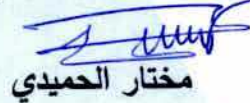 مختار الحميدي